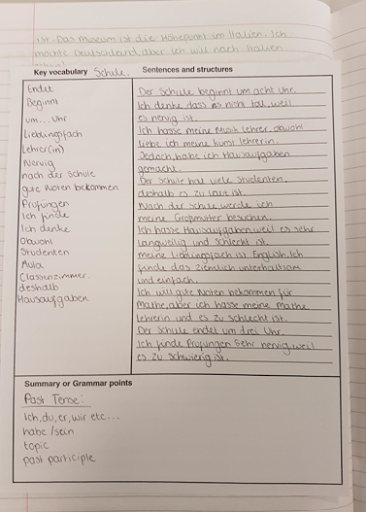 ist. Das museum ist die Höhepunkt um Italien. Ich
möchte Deutschland, aber ich will nach Italien
Key vocabulary Schule. Sentences and structures
Endet
Beginnt
um... Uhr
Lieblingsfach
Lehrer(in)
Nervig
nach der schule
gute Noten bekommen
Prüfungen
Ich finde
Ich denke
Obwohl
Studenten
Aula
Classenzimmer
deshalb
Hausaufgaben
Der Schule beginnt um acht Uhr.
Ich denke dass es nicht toll, weil
es nervig ist.
Ich hasse meine Musik Lehrer, obwohl
liebe ich meine kunst lehrerin.
Jedoch, habe ich Hausaufgaben
gemacht.
Der schule hat viele Studenten,
deshalb es zu laut ist.
Nach der schule werde ich
meine Großmutter besuchen.
Ich hasse Hausaufgaben weil es sehr
langweilig und schlecht ist.
meine Lieblingsfach ist English. Ich
finde das ziemlich unterhaltsam
und einfach.
Ich will gute Noten bekommen für
Mathe, aber ich hasse meine Mathe
Lehrerin und es zu schlecht ist.
Der Schule endet um drei Uhr.
Ich finde Prüfungen sehr nervig, weil
es zu schwierig ist.
Summary or Grammar points
Past Tense:
Ich, du, er, wir etc...
habe / sein
topic
past participle